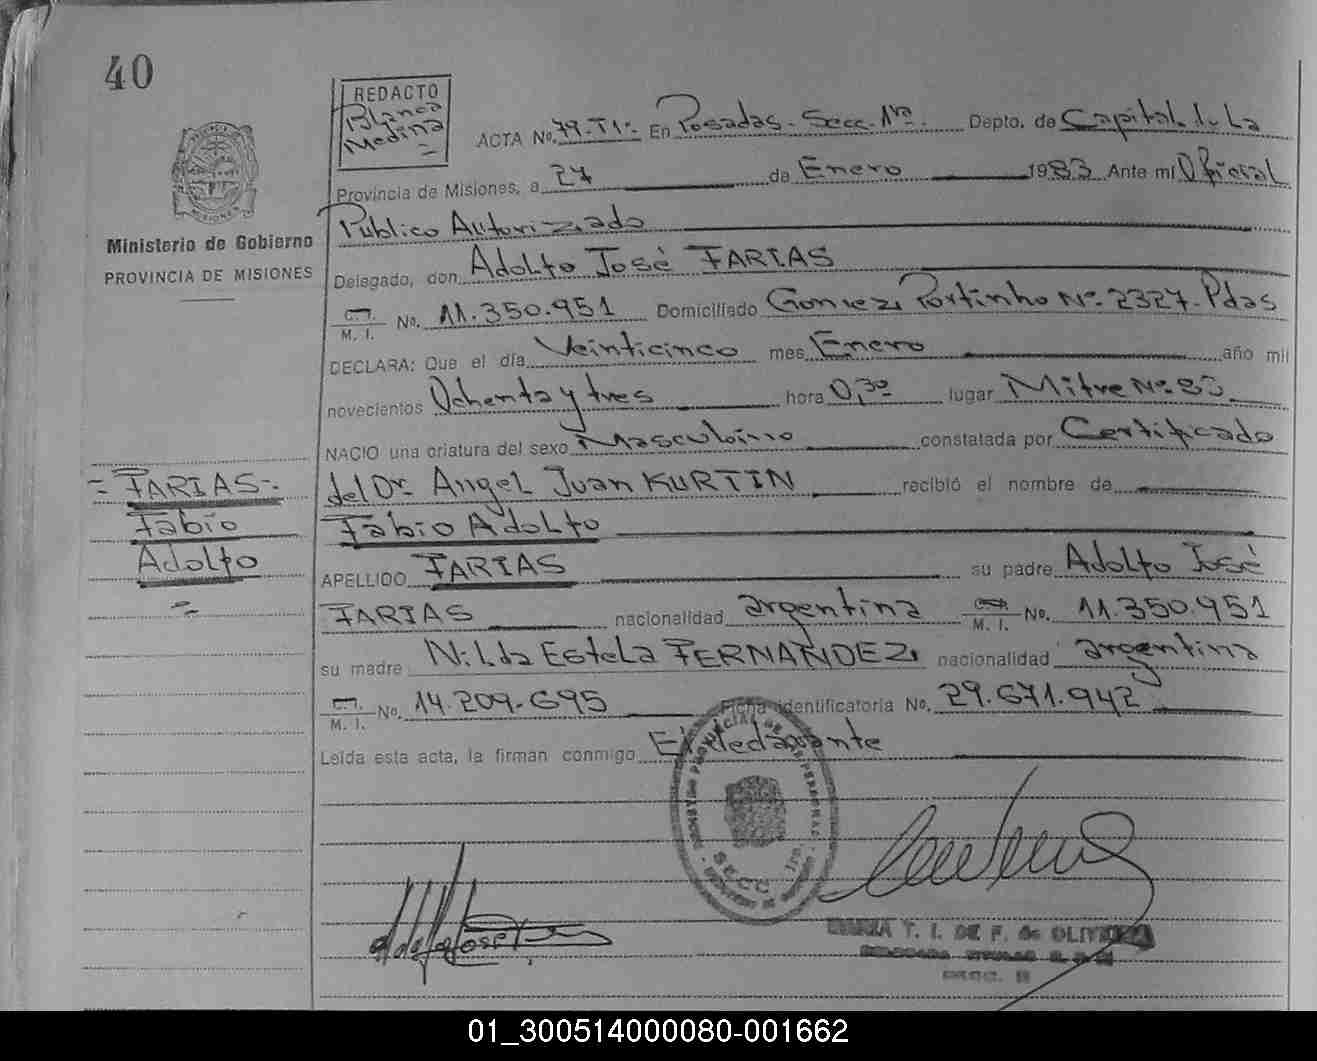 40
REDACTO
Blanca
Medina
ACTA No. 79-T1- En Posadas- Secc. 1ra. Depto. de Capital de La
Provincia de Misiones, a 27 de Enero 1983 Ante mí Oficial
Publico Autorizado
Ministerio de Gobierno
PROVINCIA DE MISIONES
Delegado, don Adolfo José FARIAS
M. I. No. 11.350.951 Domiciliado Gomez Portinho Nº 2327. Pdas
DECLARA: Que el día Veinticinco mes Enero año mil
novecientos Ochenta y tres hora 0,30 lugar Mitre Nº 83
NACIO una criatura del sexo Masculino constatada por Certificado
del Dr. Angel Juan KURTIN recibió el nombre de
Fabio Adolfo
APELLIDO FARIAS su padre Adolfo José
FARIAS nacionalidad argentina M. I. No. 11.350.951
su madre Nilda Estela FERNANDEZ nacionalidad argentina
M. I. No. 14.209.695 Ficha identificatoria No. 29.671.942
Leída esta acta, la firman conmigo El declarante
- FARIAS-.
Fabio
Adolfo
MARIA T. I. DE F. de OLIVEIRA
01_300514000080-001662